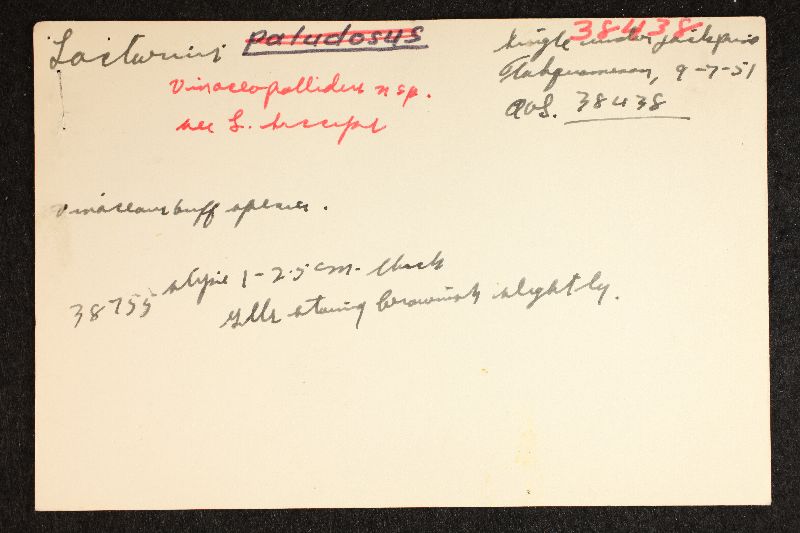 Lactarius paludosus
vinaceopallidus n sp.
see L. manuscript
38438
Single under jack pine
Tahquamenon, 9-7-51
AHS. 38438
vinaceous buff species.
38755 stipe 1-2.5 cm. thick
gills staining brownish slightly.